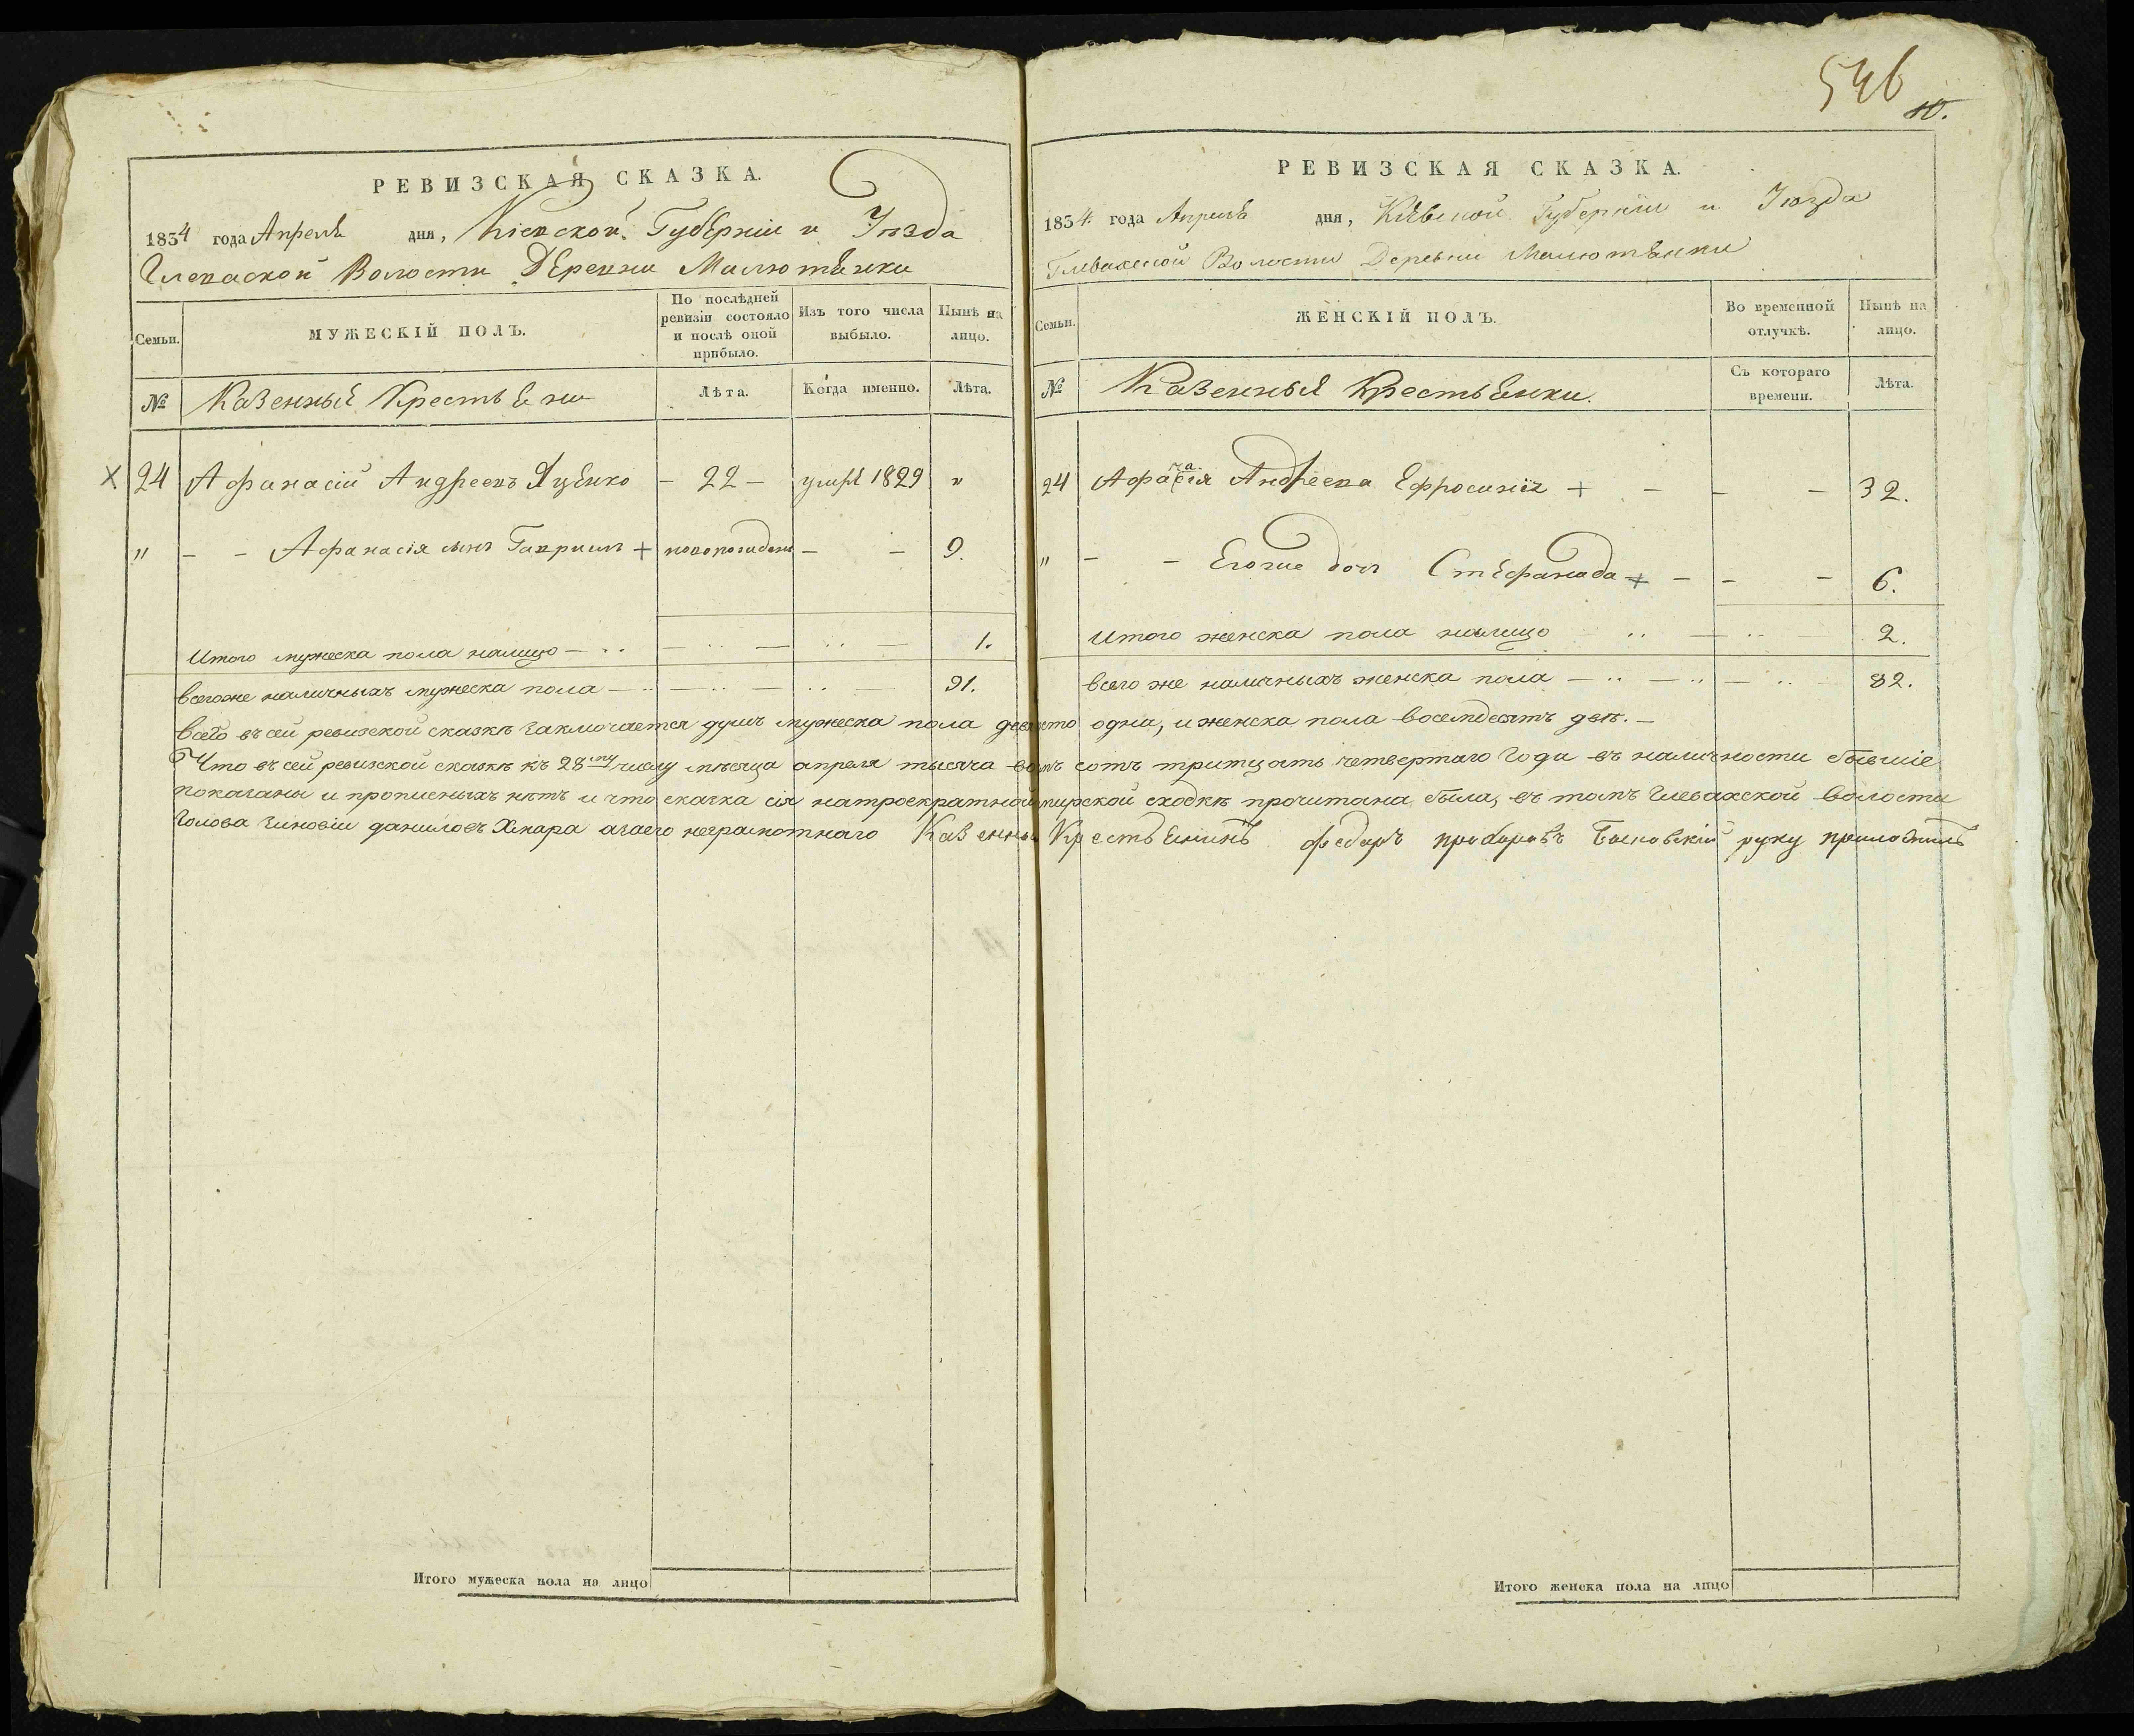 546
10.
РЕВИЗСКАЯ СКАЗКА.
1834 года Апреля дня, Кіевской Губерніи и Уѣзда
Глевахской Волости Деревни Малютянки
Семьи.
МУЖЕСКІЙ ПОЛЪ.
По послѣдней ревизіи состояло и послѣ оной прибыло.
Изъ того числа выбыло.
Нынѣ на лицо.
№
Казенныя Крестьяни
Лѣта.
Когда именно.
Лѣта.
Х 24 Афанасій Андреевъ Яценко - 22 - умре 1829 "
" - - Афанасія сынъ Гавриилъ + новорожденъ - - 9.
Итого мужеска пола налицо - 1.
Всегоже наличныхъ мужеска пола - 91.
РЕВИЗСКАЯ СКАЗКА.
1834 года Апреля дня, Кіевской Губерніи и Уѣзда
Глевахской Волости Деревни Малютянки
Семьи.
ЖЕНСКІЙ ПОЛЪ.
Во временной отлучкѣ.
Нынѣ на лицо.
№
Казенныя Крестьянки.
Съ котораго времени.
Лѣта.
24 Афанасія Андреева Ефросинія + - - - 32.
" - - Егоже дочь Стефанада + - - - 6.
Итого женска пола налицо - 2.
Всего же наличныхъ женска пола - 82.
Всего въ сей ревизской сказкѣ заключается душъ мужеска пола девяносто одна, и женска пола восемдесятъ двѣ. -
Что въ сей ревизской сказкѣ къ 28му числу месяца апреля тысяча восемъ сотъ тритцать четвертаго года въ наличности бывшіе
показаны и прописныхъ нетъ и что сказка сія натроекратной мирской сходкѣ прочитана была, въ томъ Глевахской волости
Голова Зиновій Даниловъ Хмара а заего неграмотнаго Казенный Крестьянинъ Федоръ руку приложилъ
Итого мужеска пола на лицо
Итого женска пола на лицо